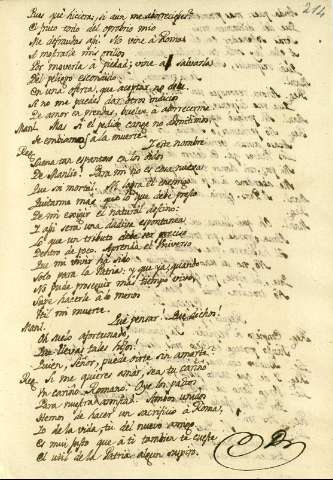 214
Pues qué hiciera, si aun me aborreciese?
El fruto todo del oprobio mio
Me defraudas así? No vine á Roma
A mostrarla mis grillos
Por moverla á piedad; vine á salvarla
Del peligro escondido
En una oferta, que aceptar no debe.
Si no me puedes dar otro indicio
De amor en prendas, buelve á aborrecerme.
Manl. Mas si el pedido cange no admitimos
Se enviamos á la muerte.
Reg. Y este nombre
Suena tan espantoso en los oidos
De Manlio! Para mi no es cosa nueva
Que soi mortal. No logra el enemigo
Quitarme mas que lo que debe presto
De mi exigir el natural destino:
Y así será una dadiva espontanea
Lo que un tributo debe ser preciso
Dentro de poco. Aprenda el Universo
Que mi vivir ha sido
Solo para la Patria; y que ya quando
No pude proseguir mas tiempo vivo,
Supe hacerla á lo menos
Util mi muerte.
Manl. Qué pensar! Qué dichos!
Oh suelo afortunado,
Que llevas tales hijos!
Quien, Señor, puede verte sin amarte.
Reg. Si me quieres amar, sea tu cariño
Un cariño Romano. Oye los pactos
De nuestra amistad. Ambos unidos
Hemos de hacer un sacrificio á Roma,
Yo de la vida; tu del nuevo amigo
Es mui justo que á ti tambien te cueste
El util de la Patria algun suspiro.